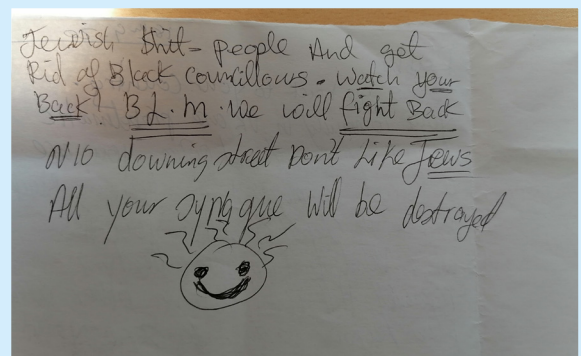 Jewish Shit - People And get
Rid of Black Councillows. Watch your
Back! B L.M. we will fight Back
N10 downing street Don't Like Jews
All your synague Will be destroyed